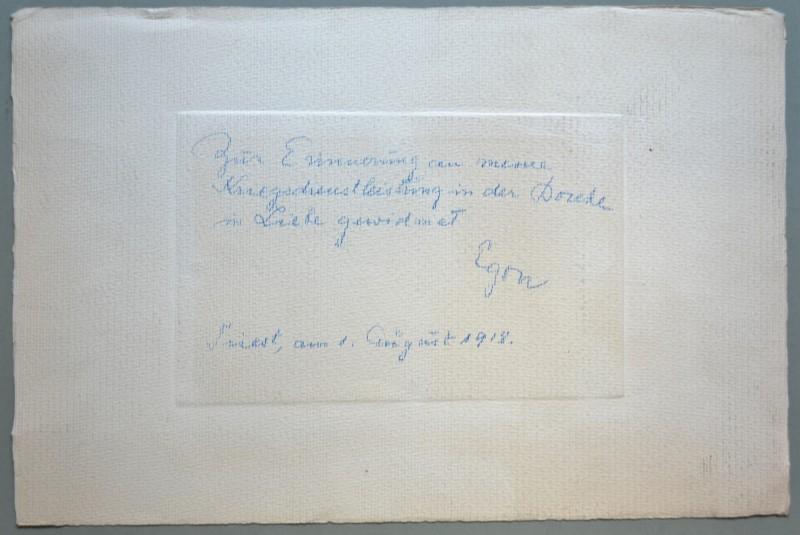 Zur Erinnerung an meine
Kriegsdienstleistung in der
in Liebe gewidmet
Egon
Triest, am 1. August 1918.